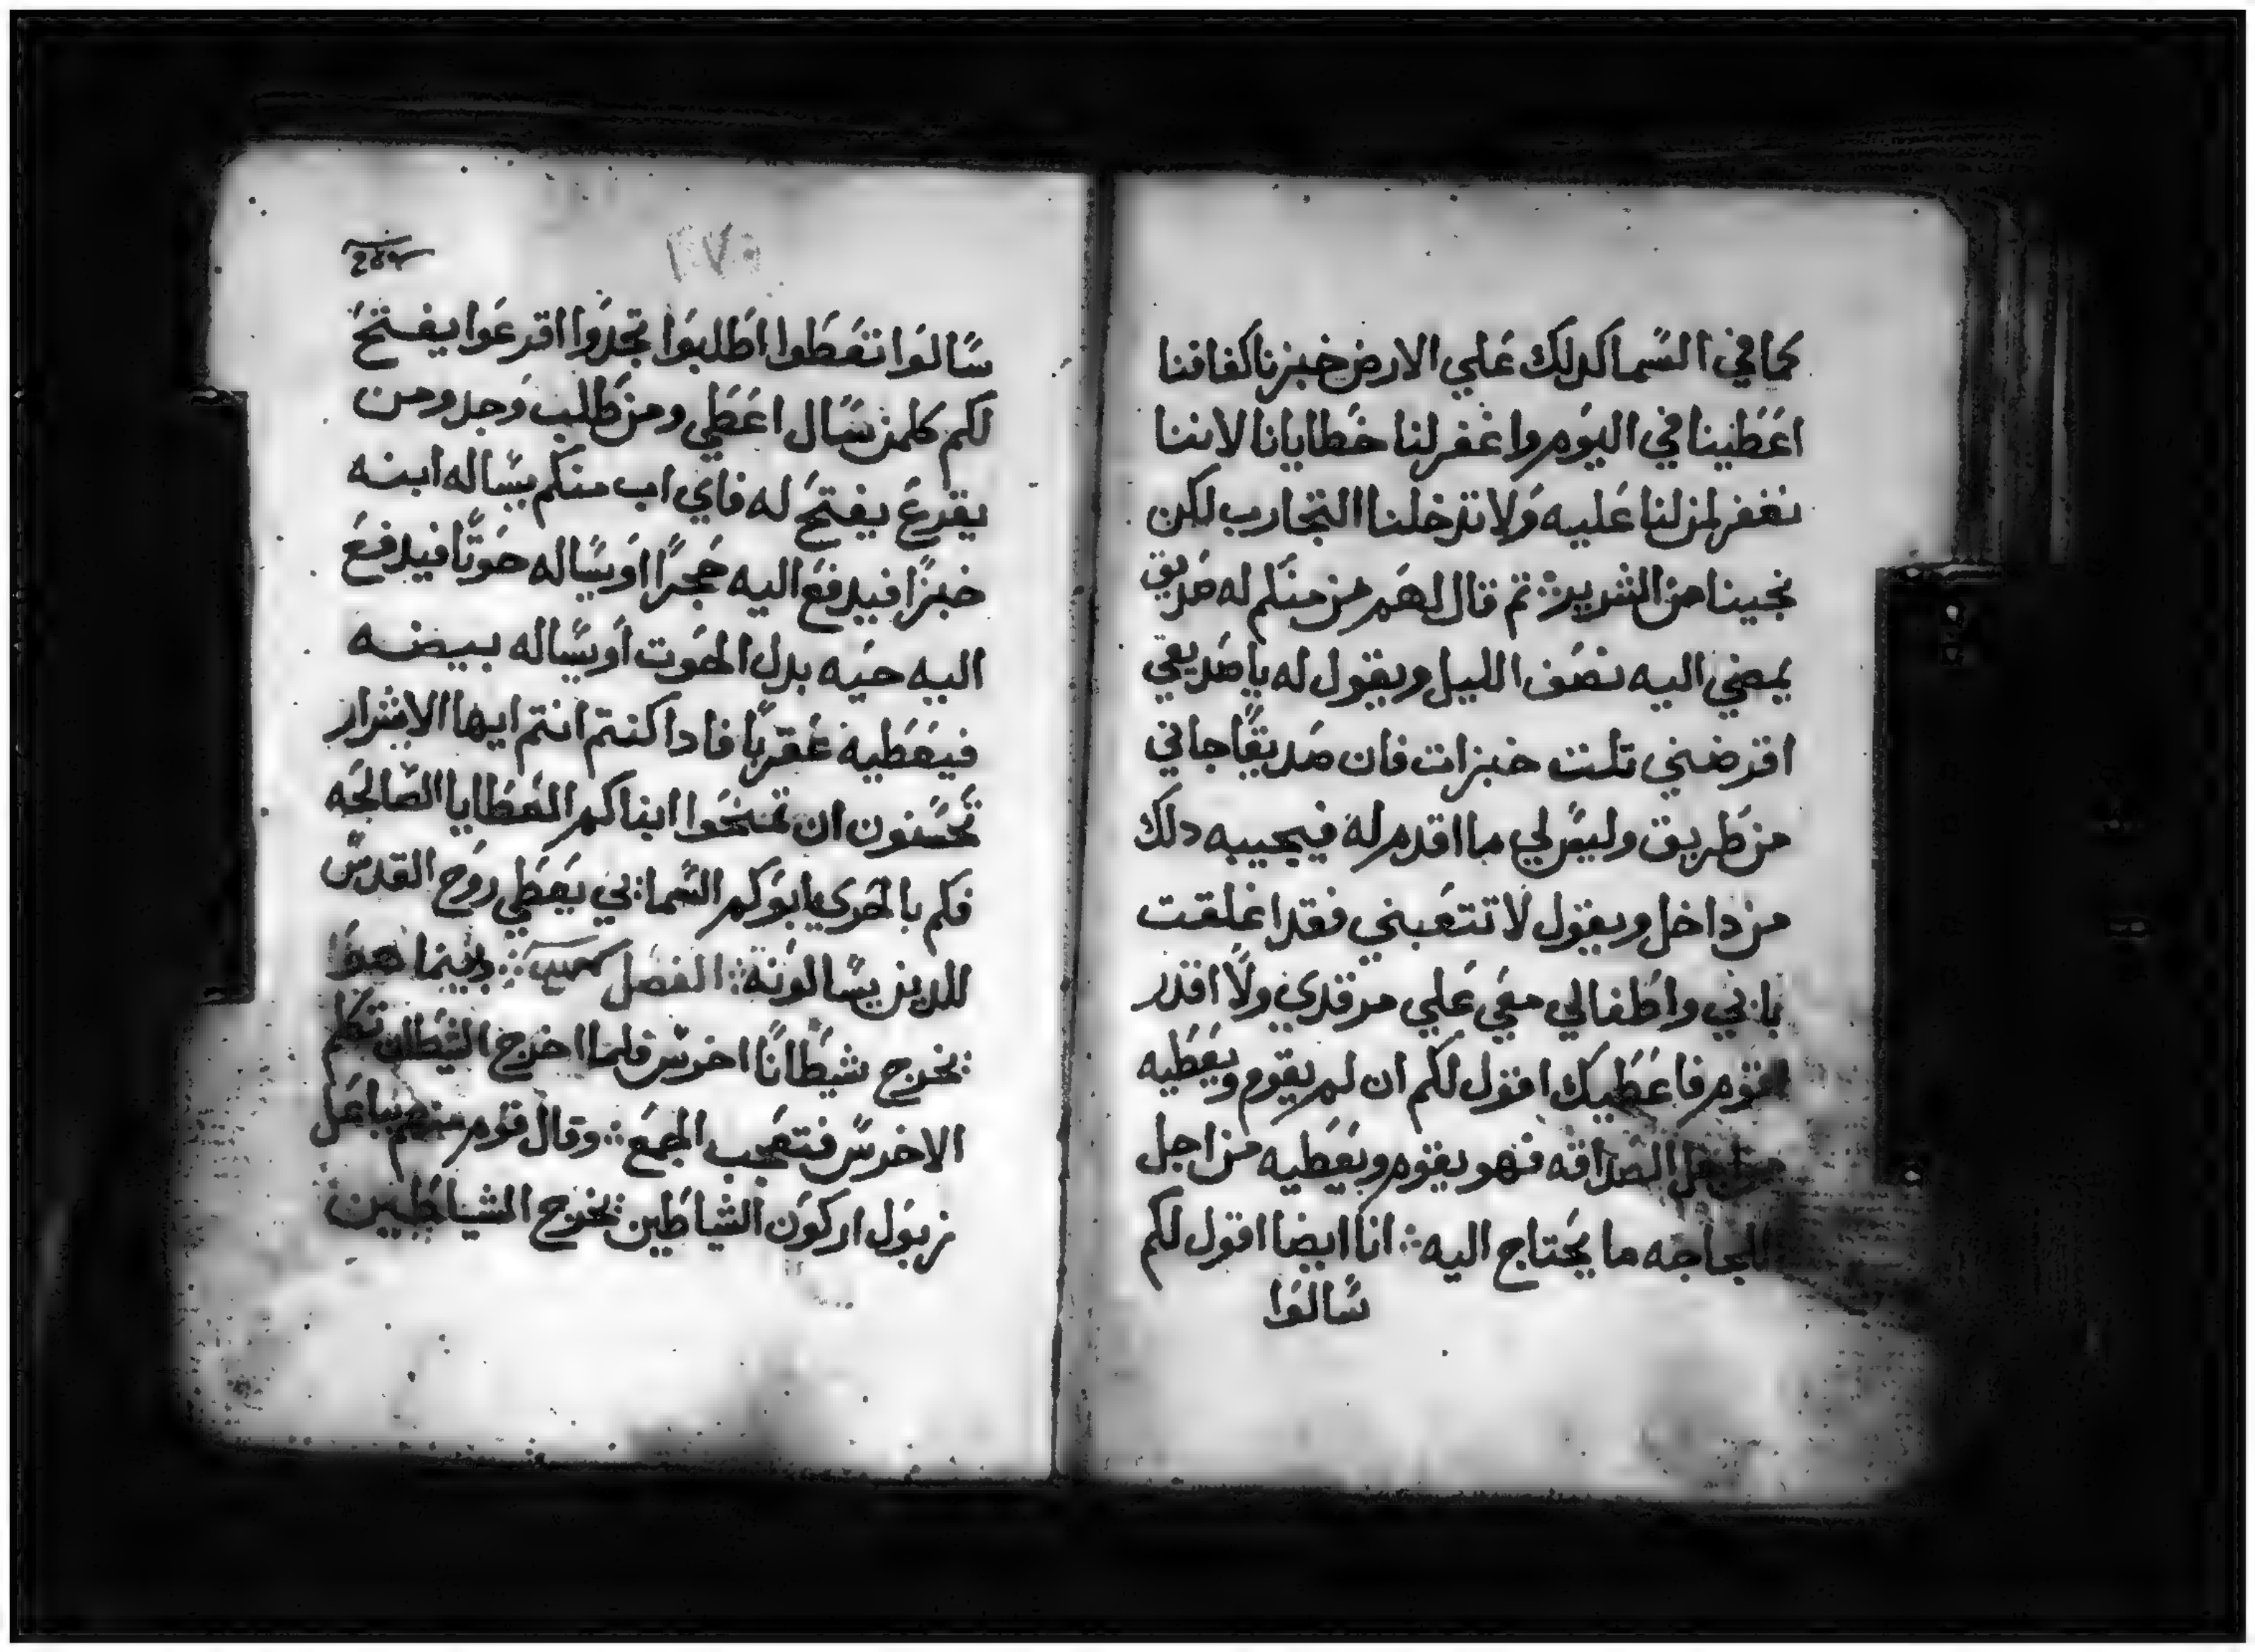 كما في السما كدلك علي الارض خبزنا كفافنا
اعطينا في اليوم واغفر لنا خطايانا لاننا
نغفر لمن لنا عليه ولا تدخلنا التجارب لكن
نجينا من الشرير ثم قال لهم من منكم له صديق
يمضي اليه نصف الليل ويقول له يا صديقي
اقرضني تلت خبزات فان صديقًا جاني
من طريق وليس لي ما اقدم له فيجيبه دلك
من داخل ويقول لا تتعبني فقد اغلقت
بابي واطفالي معي علي مرقدي ولا اقدر
اقوم فاعطيك اقول لكم ان لم يقوم ويعطيه
من اجل الصداقه فهو يقوم ويعطيه من اجل
الجاجه ما يحتاج اليه انا ايضا اقول لكم
سالوا
١٧٠
سالوا تعطوا اطلبوا تجدوا اقرعوا يفتح
لكم كلمن سال اعطي ومن طلب وجد ومن
يقرع يفتح له فاي اب منكم يساله ابنه
خبزًا فيدفع اليه حجرًا او يساله حوتًا فيدفع
اليه حيه بدل الحوت او يساله بيضه
فيعطيه عقربًا فادا كنتم انتم ايها الاشرار
تحسنون ان تمنحوا ابناكم العطايا الصالحه
فكم بالحري ابوكم السمايي يعطي روح القدس
للدين يسالونه الفصل وبينما هو
يخرج شيطانًا اخرس فلما اخرج الشيطان تكلم
الاخرس فتعجب الجمع وقال قوم منهم بباعل
زبول اركون الشياطين يخرج الشياطين